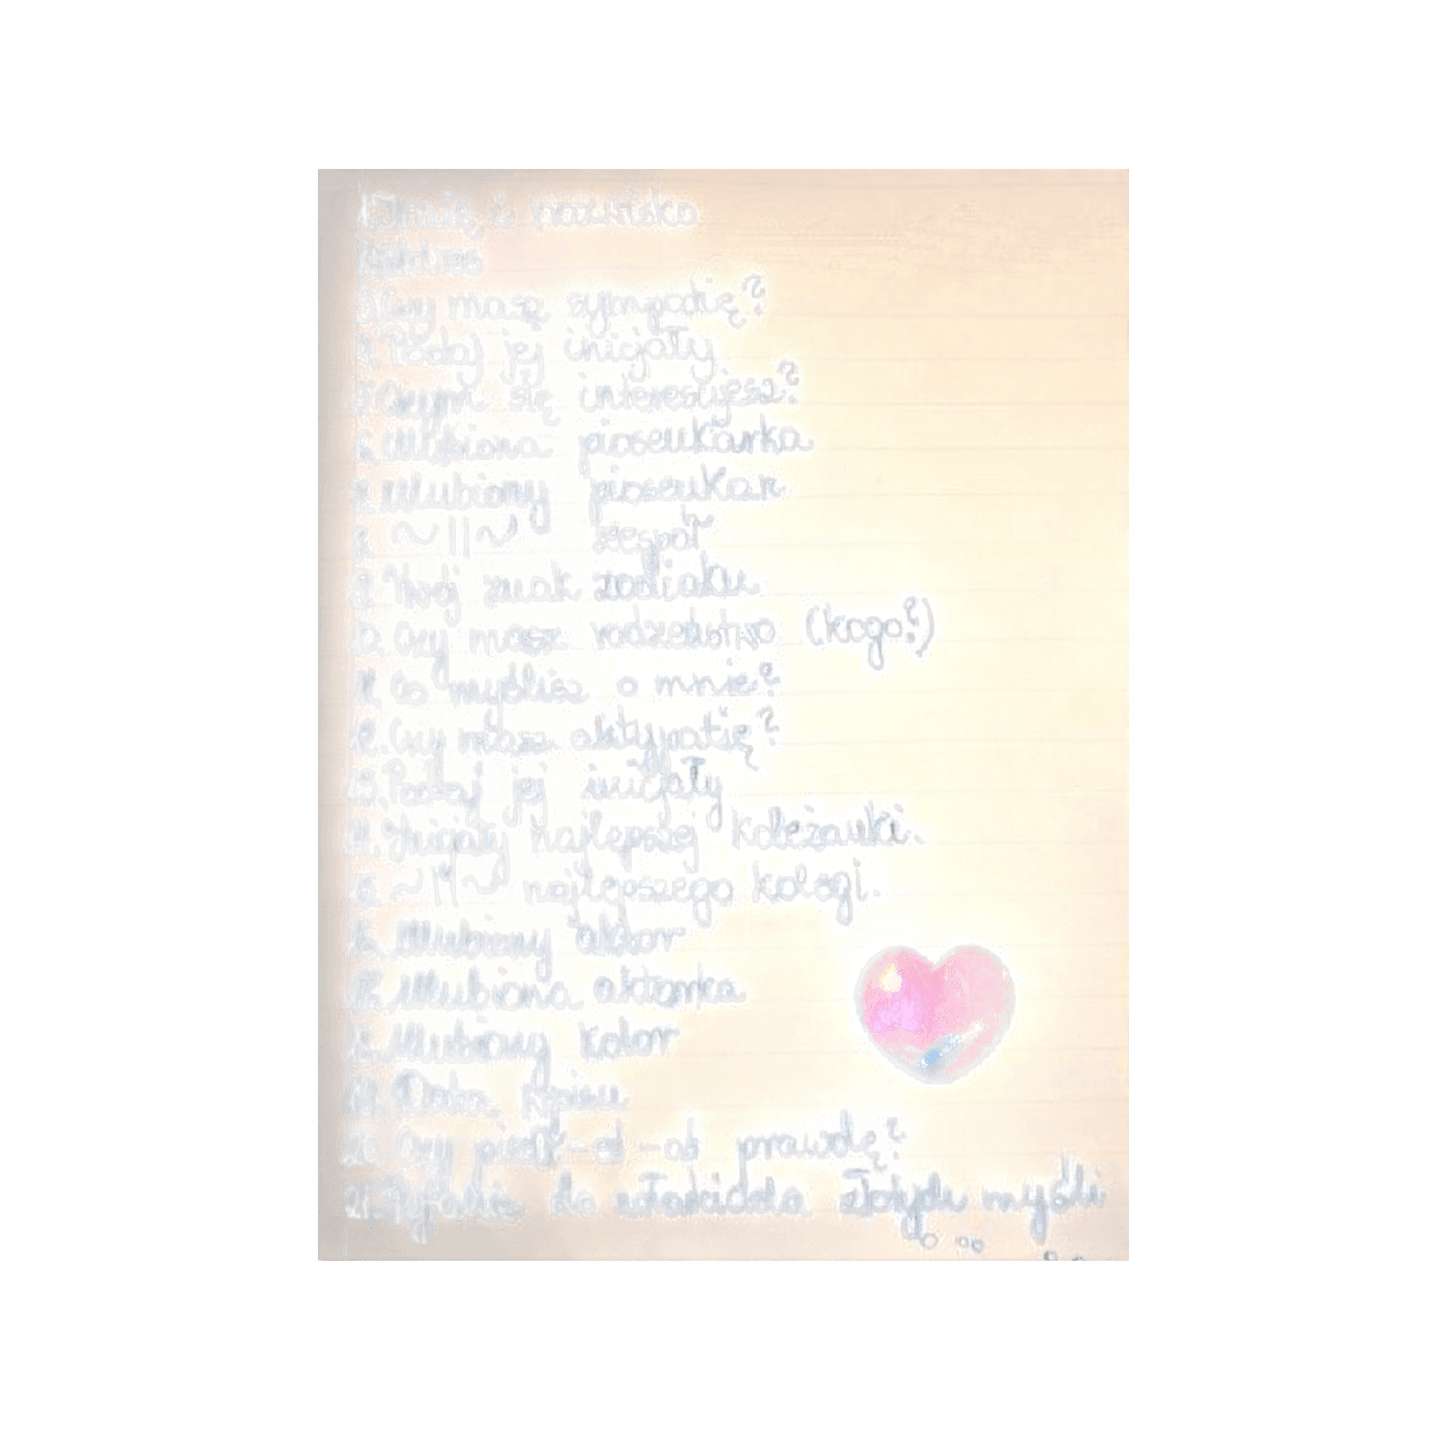 1. Imię i nazwisko
3. Czy masz sympatię?
4. Podaj jej inicjały
5. Czym się interesujesz?
6. Ulubiona piosenkarka
7. Ulubiony piosenkar
8. ~||~ zespół
9. Twój znak zodiaku
10. Czy masz rodzeństwo (kogo?)
11. Co myślisz o mnie?
12. Czy masz aktypatię?
13. Podaj jej inicjały
14. Inicjały najlepszej koleżanki.
15. ~||~ najlepszego kolegi.
16. Ulubiony aktor
17. Ulubiona aktorka
18. Ulubiony kolor
19. Data wpisu
20. Czy pisał-eś-aś prawdę?
21. do myśli